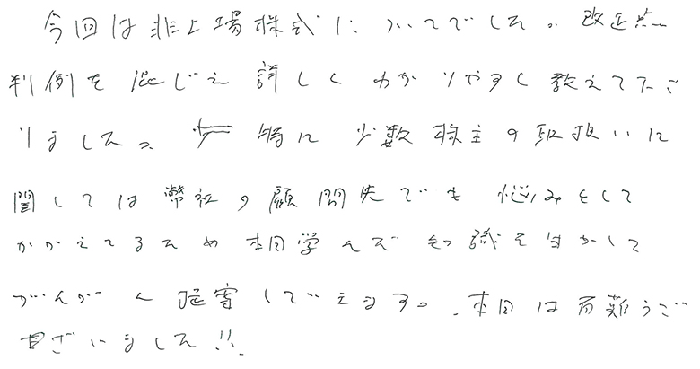 今回は非上場株式についてでした。改正点
判例を混じえ詳しくわかりやすく教えてださ
りました。特に少数株主の取扱いに
関しては弊社の顧問先でも悩みをして
かかえてるため本日学んだ知識を生かして
がんがん提案していきます。本日は有難うご
ございました!!